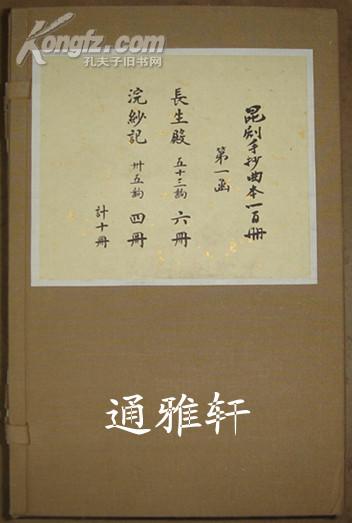 Kongfz.com
孔夫子旧书网
昆剧手抄曲本一百冊
第一函
長生殿 五十三齣 六冊
浣紗記 卅五齣 四冊
計十冊
通雅轩